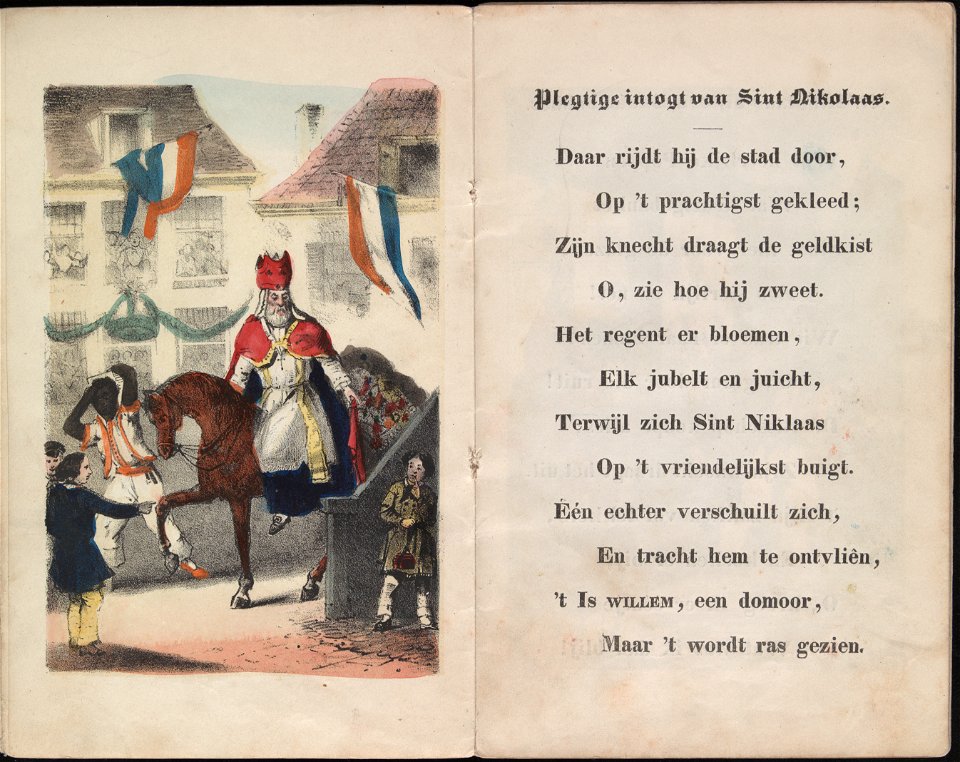 Plegtige intogt van Sint Nikolaas.
Daar rijdt hij de stad door,
Op 't prachtigst gekleed;
Zijn knecht draagt de geldkist
O, zie hoe hij zweet.
Het regent er bloemen,
Elk jubelt en juicht,
Terwijl zich Sint Niklaas
Op 't vriendelijkst buigt.
Één echter verschuilt zich,
En tracht hem te ontvliên,
't Is WILLEM, een domoor,
Maar 't wordt ras gezien.